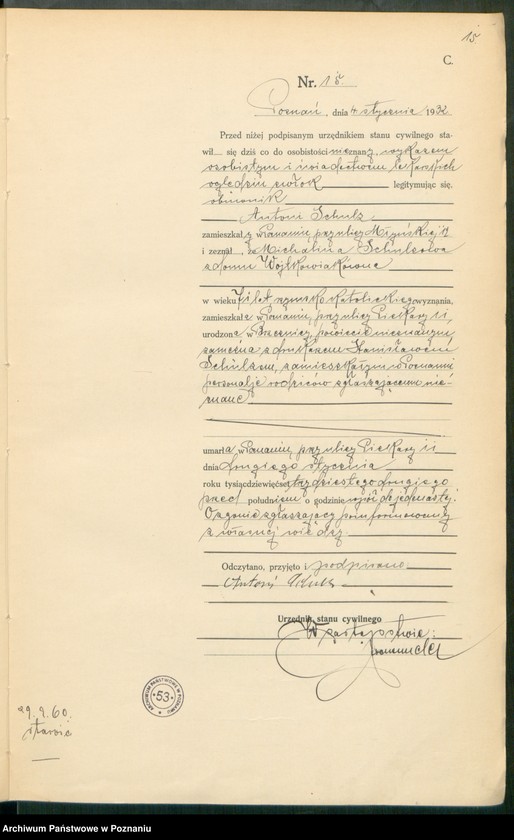 15
C.
Nr. 15.
Poznań, dnia 4 stycznia 1932
Przed niżej podpisanym urzędnikiem stanu cywilnego sta-
wił się dziś co do osobistości nieznany, wykazem
osobistym i świadectwem lekarskich
oględzin zwłok legitymując się,
Antoni Schulz
zamieszkały w Poznaniu, przy ulicy 11
i zeznał, że Michalina Schulzowa
z domu Wojtkowiakówna
w wieku lat, rzymsko katolickiego wyznania,
zamieszkała w Poznaniu, przy ulicy Piekary 11,
urodzona w powiecie nieznanym,
zamężna z drukarzem Stanisławem
Schulzem, zamieszkałym w Poznaniu
personalje rodziców zgłaszającemu nie-
znane
umarła w Poznaniu, przy ulicy Piekary 11
dnia drugiego stycznia
roku tysiącdziewięćset trzydziestego drugiego
przed południem o godzinie wpół do jedenastej.
O zgonie zgłaszający poinformowany
z własnej wiedzy
Odczytano, przyjęto i podpisano
Antoni Schulz
Urzędnik stanu cywilnego
W zastępstwie:
ARCHIWUM PAŃSTWOWE W POZNANIU
53
29.9.60.
Archiwum Państwowe w Poznaniu